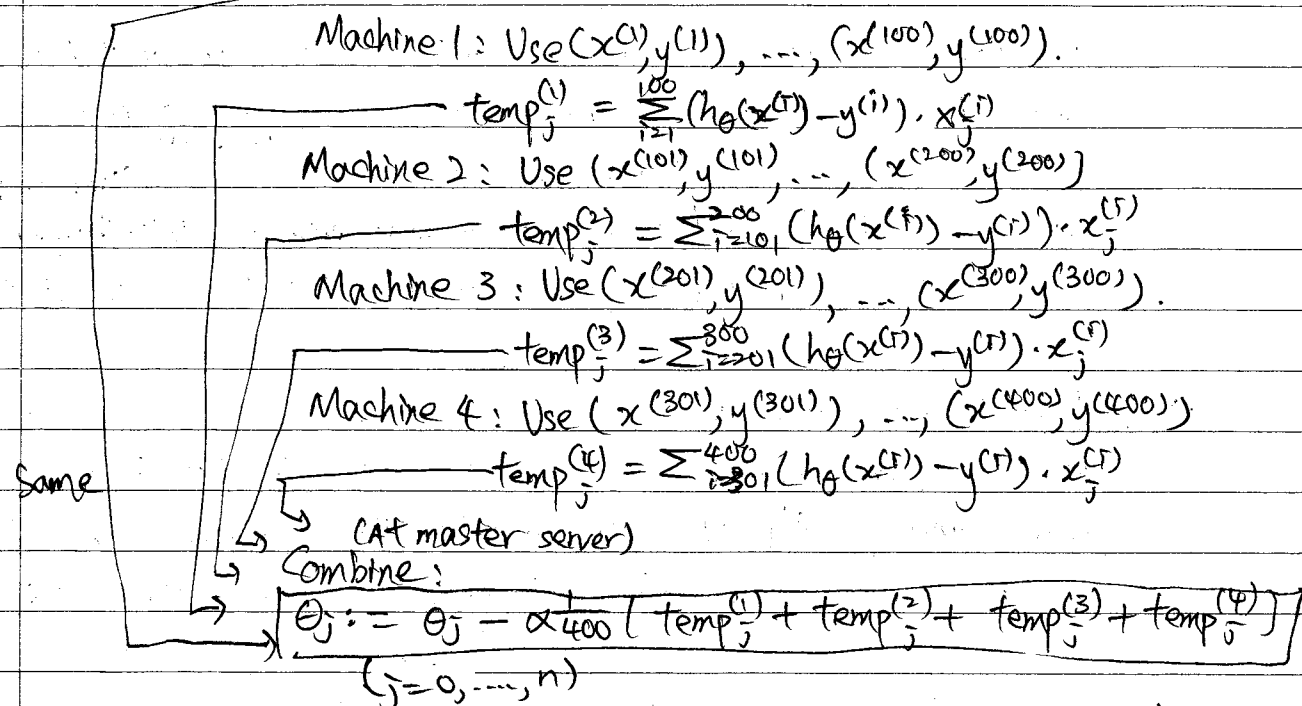 Machine 1: Use (x^(1), y^(1)), ...., (x^(100), y^(100)).
temp_j^(1) = Σ_{i=1}^{100} (h_θ(x^(i)) - y^(i)) · x_j^(i)
Machine 2: Use (x^(101), y^(101), ..., (x^(200), y^(200))
temp_j^(2) = Σ_{i=101}^{200} (h_θ(x^(i)) - y^(i)) · x_j^(i)
Machine 3: Use (x^(201), y^(201)), ..., (x^(300), y^(300)).
temp_j^(3) = Σ_{i=201}^{300} (h_θ(x^(i)) - y^(i)) · x_j^(i)
Machine 4: Use (x^(301), y^(301)), ..., (x^(400), y^(400))
temp_j^(4) = Σ_{i=301}^{400} (h_θ(x^(i)) - y^(i)) · x_j^(i)
Same
(At master server)
Combine:
θ_j := θ_j - α 1/400 ( temp_j^(1) + temp_j^(2) + temp_j^(3) + temp_j^(4) )
(j=0, ...., n)